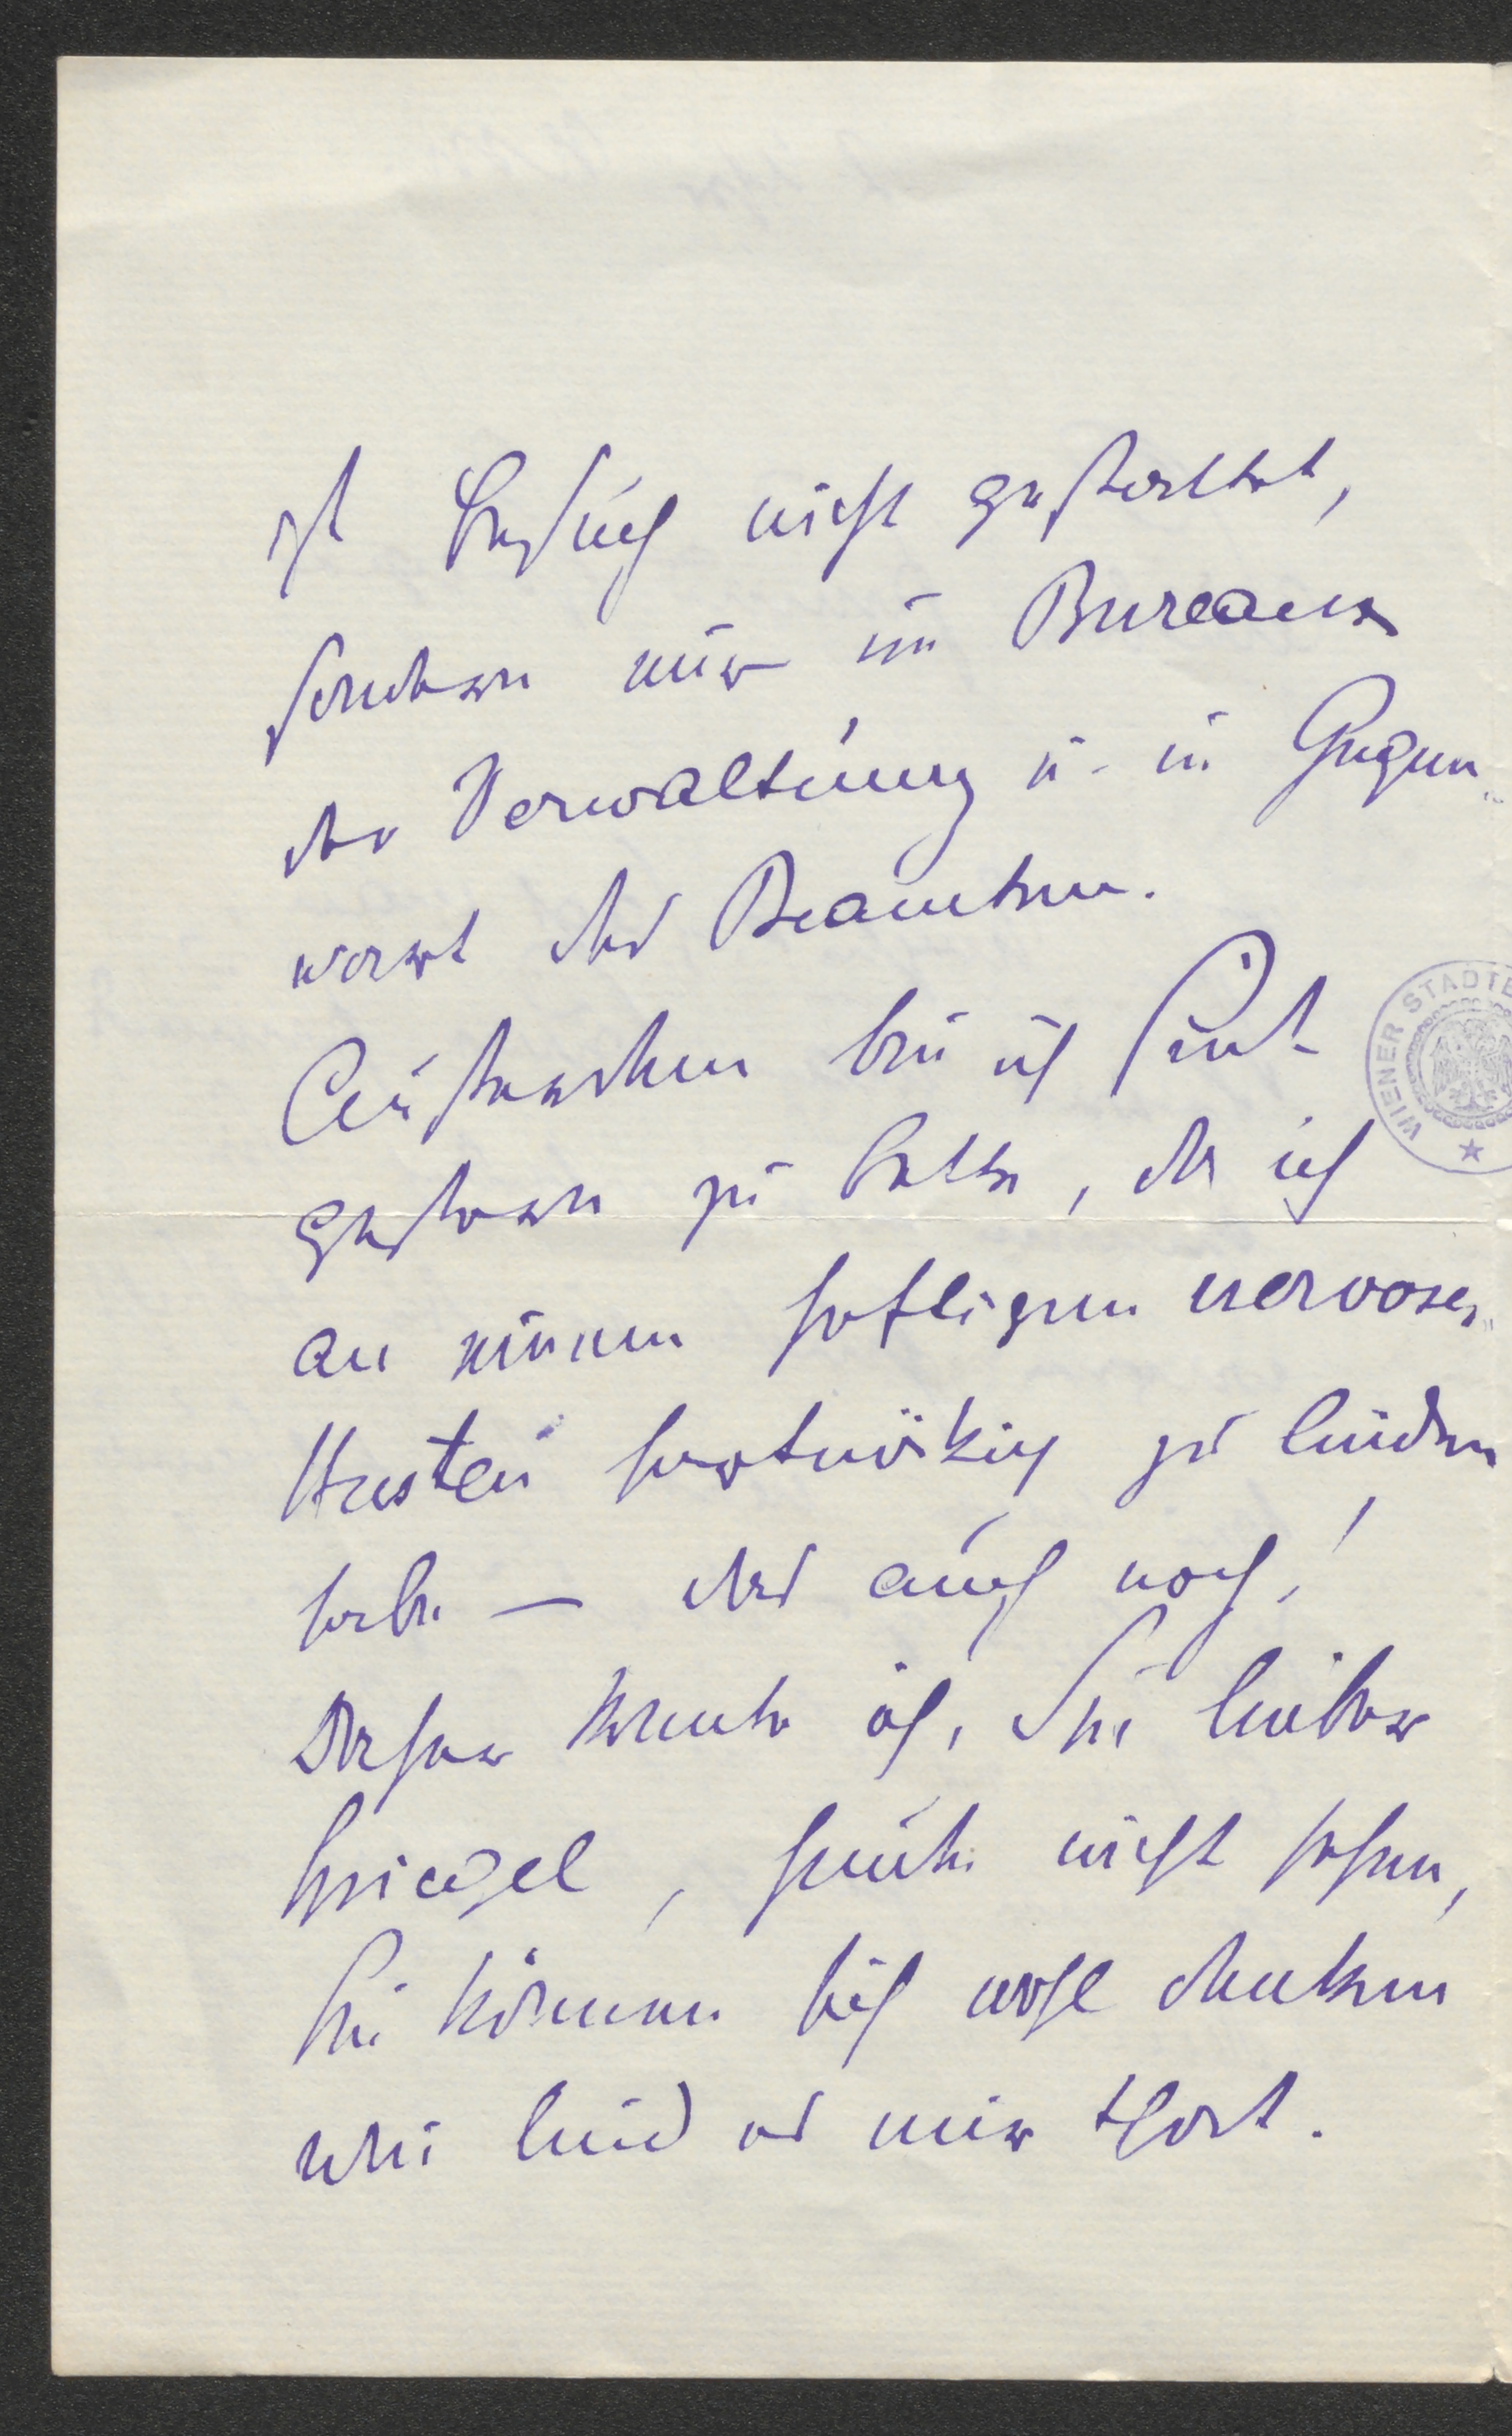 ist Besuch nicht gestattet,
sondern nur im Bureau
der Verwaltung u. in Gegen-
wart des Beamten.
Außerdem bin ich seit
gestern zu Bette, da ich
an einem heftigen nervosen
Husten hartnäkig zu leiden
habe – das auch noch!
Daher konnte ich, Sie lieber
Spiegel, heute nicht sehen,
Sie können sich wohl denken
wie leid es mir thut.
WIENER STADTB